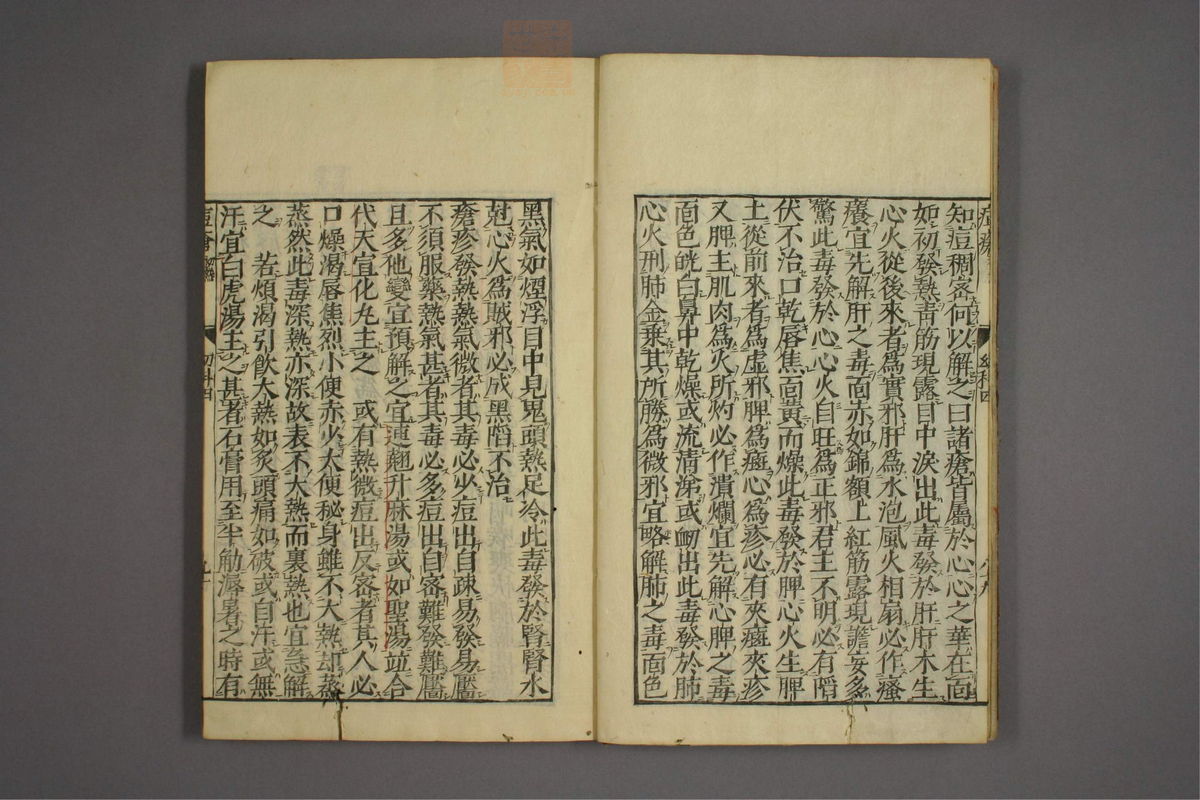 知痘稠密何以解之曰諸瘡皆屬於心心之華在面
如初發熱青筋現露目中淚出此毒發於肝肝木生
心火從後來者為實邪肝為水泡風火相扇必作瘙
癢宜先解肝之毒面赤如錦額上紅筋露現譫妄多
驚此毒發於心心火自旺為正邪君主不明必有陷
伏不治口乾唇焦面黃而燥此毒發於脾心火生脾
土從前來者為虛邪脾為癍心為疹必有夾癍夾疹
又脾主肌肉為火所灼必作潰爛宜先解心脾之毒
面色㿠白鼻中乾燥或流清涕或衄出此毒發於肺
心火刑肺金乗其所勝為微邪宜略解肺之毒面色
黑氣如煙浮目中見鬼頭熱足冷此毒發於腎腎水
尅心火為賊邪必成黑陷不治
瘡疹發熱熱氣微者其毒必少痘出自疎易發易靨
不須服藥熱氣甚者其毒必多痘出自密難發難靨
且多他變宜預解之宜連翹升麻湯或如聖湯並合
代天宜化丸主之 或有熱微痘出反密者其人必
口燥渴唇焦烈小便赤少大便秘身雖不大熱却蒸
蒸然此毒深熱亦深故表不大熱而裏熱也宜急解
之 若煩渴引飲大熱如炙頭痛如破或自汗或無
汗宜白虎湯主之甚者石膏用至半觔溽暑之時有
幼科四